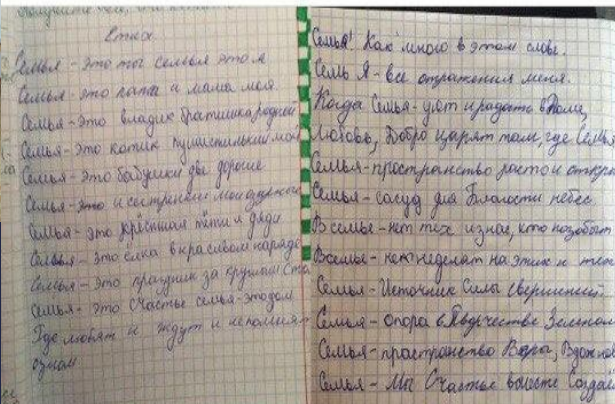 Стих
Семья - это ты семья это я
Семья - это папа и мама моя
Семья - это владик братишка родной
Семья - это котик пушистинький мой
Семья - это бабушки две дорогие
Семья - это и сестренки мои
Семья - это крёстная тёти и дяди
Семья - это ёлка в красивом наряде
Семья - это праздник за круглым
Семья - это счастье семья - этодом
Где любят и ждут и непомнят
озлом
Семья! Как много в этом слове.
Семь Я - все отражения меня.
Когда Семья - уют и радость в Доме,
Любовь, Добро царят там, где Семья
Семья - пространство роста и
Семья - сосуд для Благости небес.
В семье - нет тех изнас, кто
В семье - нет на этих и тех
Семья - Источник Силы
Семья - опора в Творчестве Земном
Семья - пространство Веры,
Семья - Мы Счастье вместе